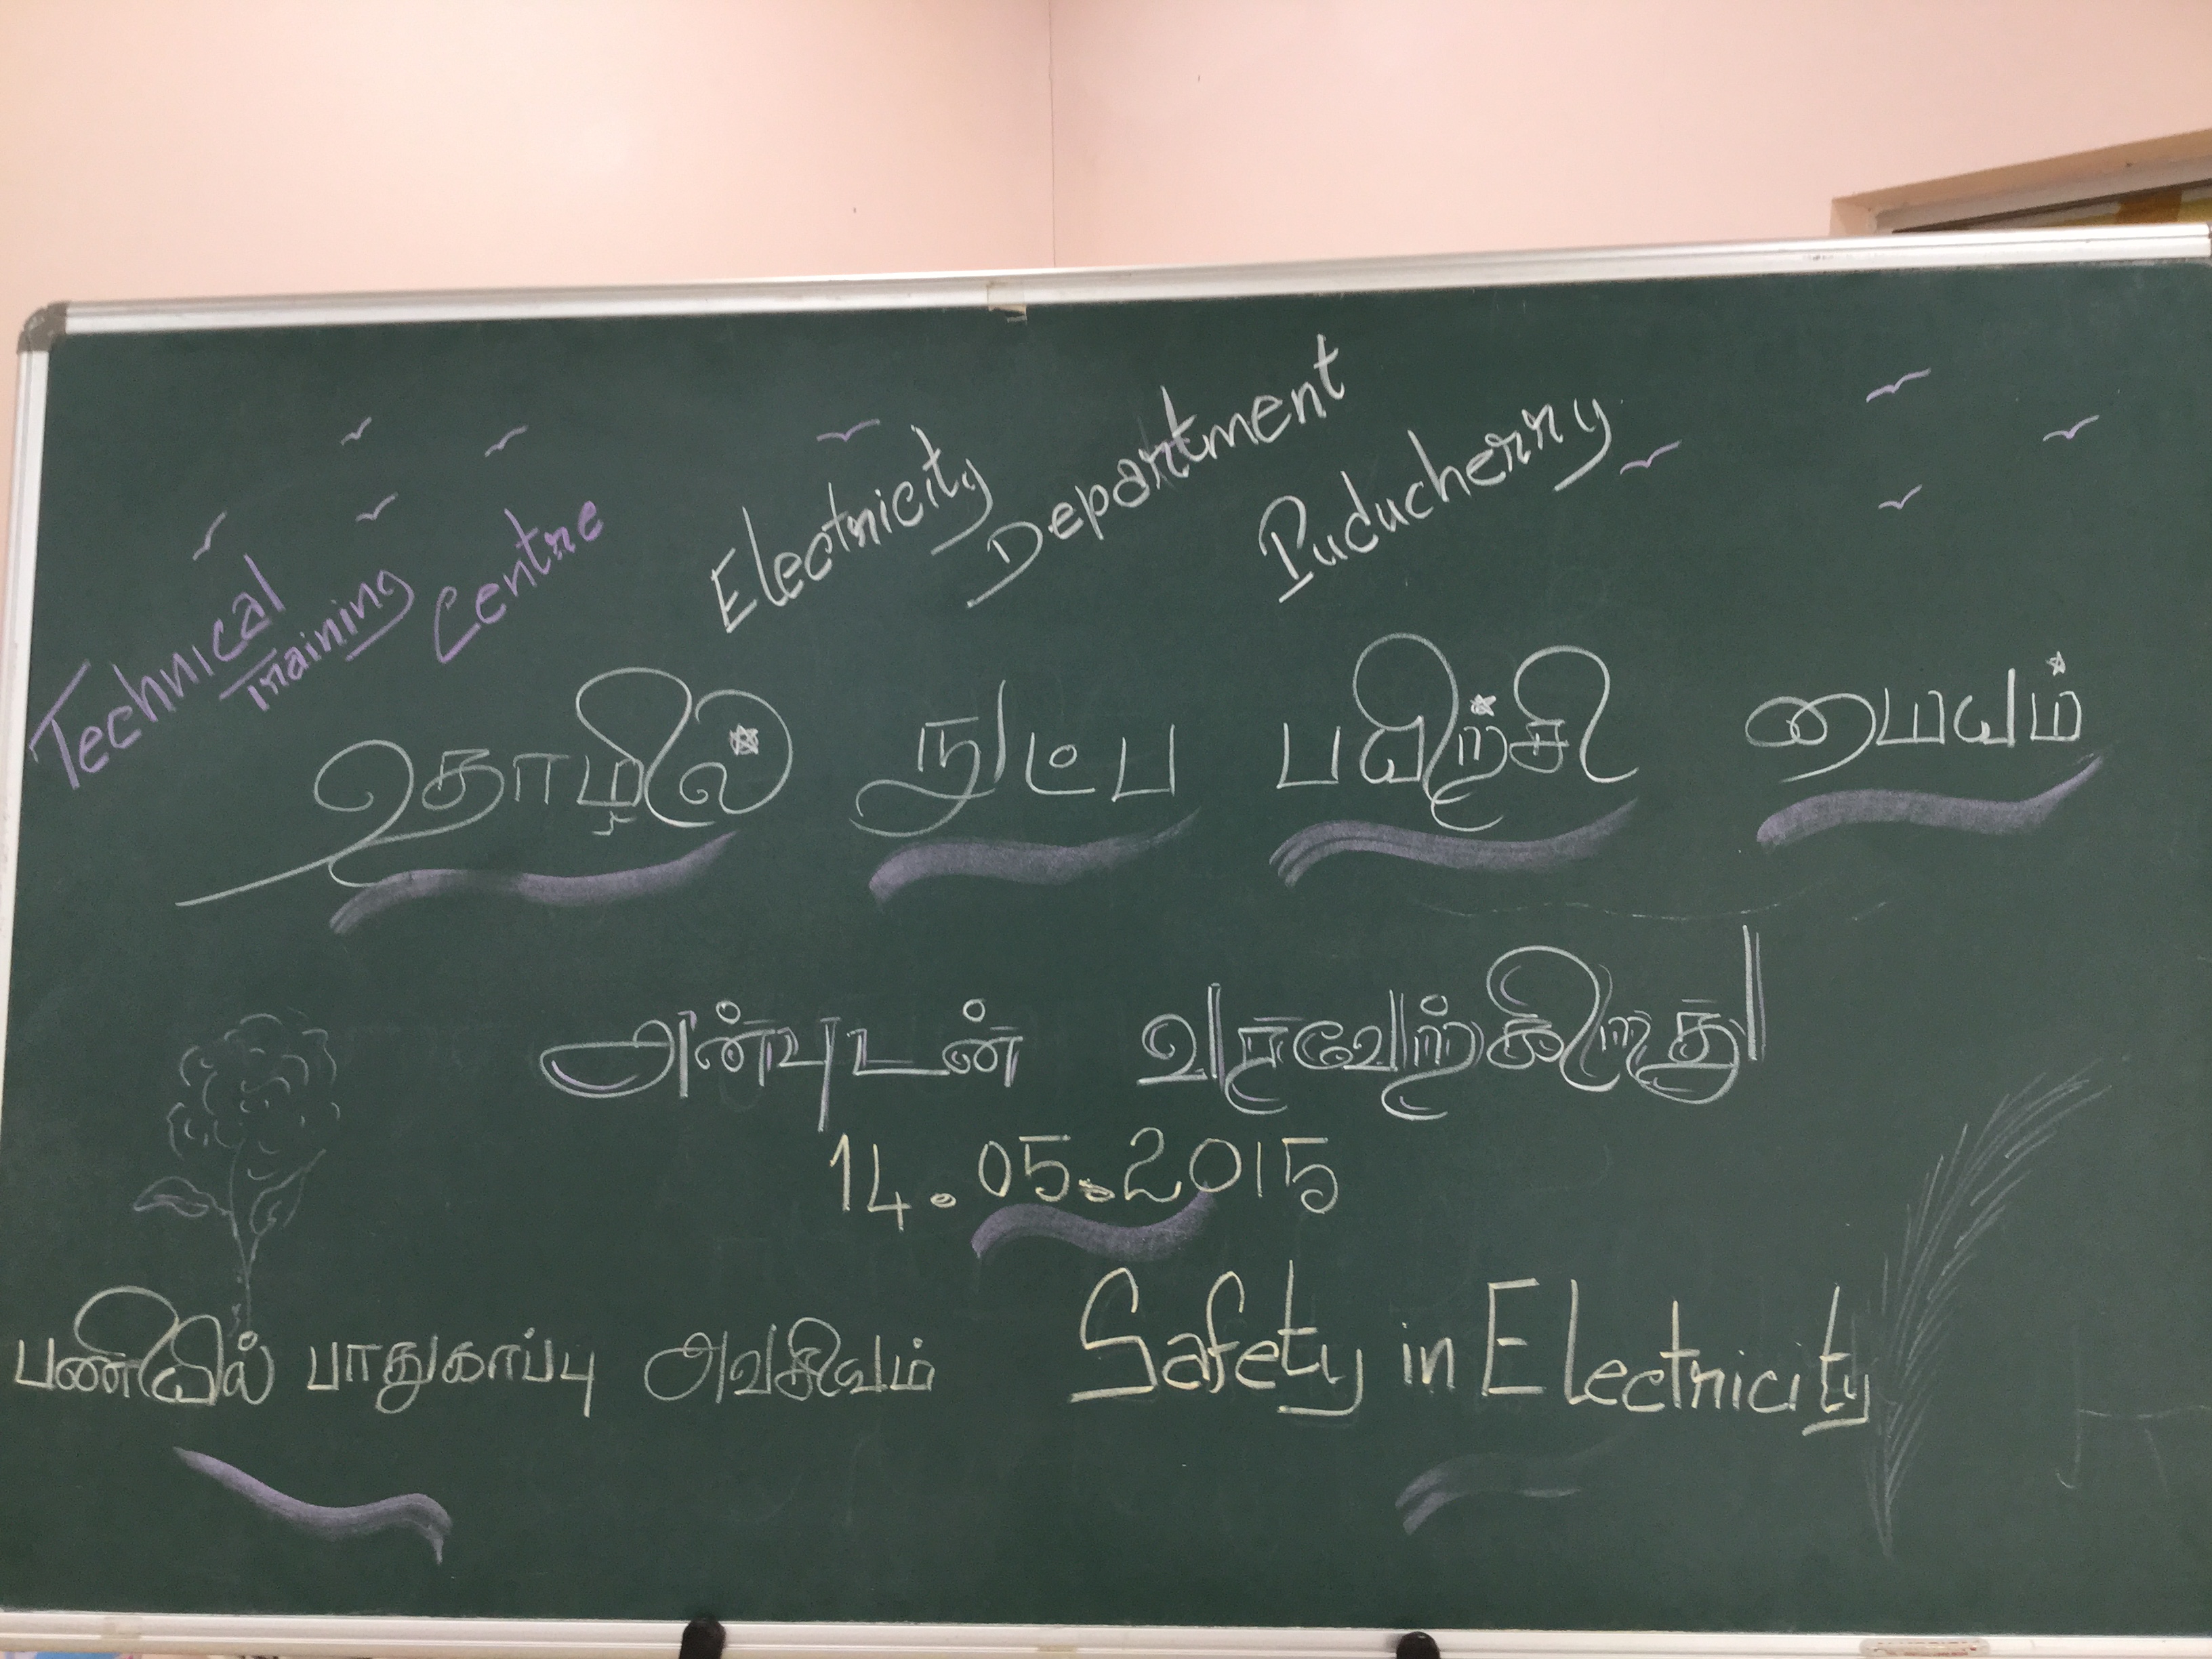 Technical Training Centre
Electricity Department Puducherry
தொழில் நுட்ப பயிற்சி மையம்
அன்புடன் வரவேற்கிறது
14.05.2015
பணியில் பாதுகாப்பு அவசியம்
Safety in Electricity